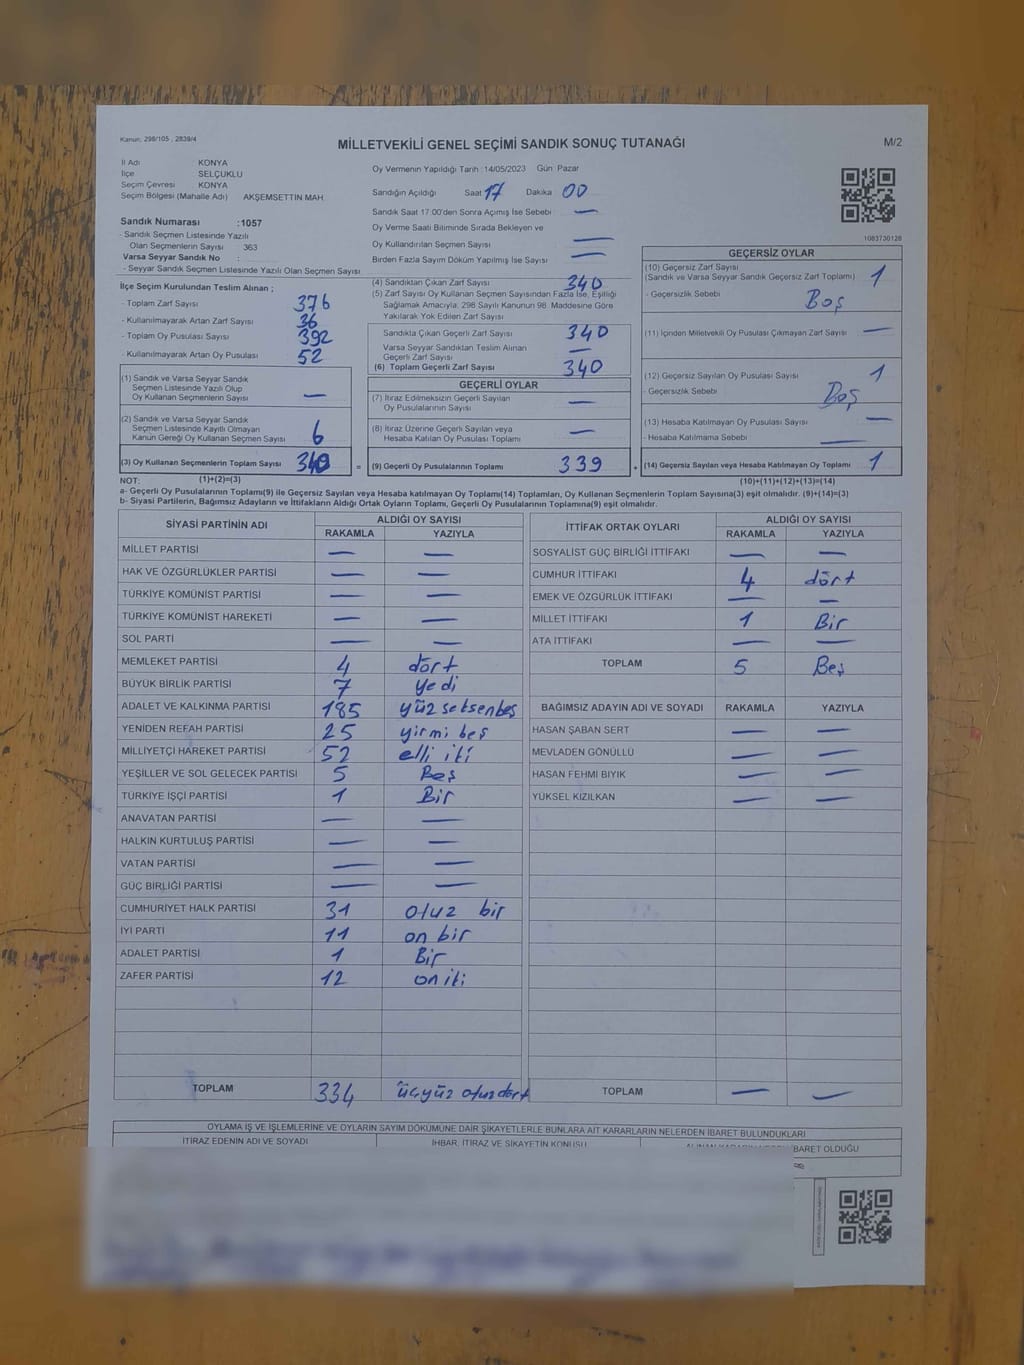 Kanun: 298/105 , 2839/4
MİLLETVEKİLİ GENEL SEÇİMİ SANDIK SONUÇ TUTANAĞI
M/2
İl Adı KONYA
İlçe SELÇUKLU
Seçim Çevresi KONYA
Seçim Bölgesi (Mahalle Adı) AKŞEMSETTİN MAH.
Sandık Numarası :1057
- Sandık Seçmen Listesinde Yazılı
Olan Seçmenlerin Sayısı 363
Varsa Seyyar Sandık No :
- Seyyar Sandık Seçmen Listesinde Yazılı Olan Seçmen Sayısı
İlçe Seçim Kurulundan Teslim Alınan ;
- Toplam Zarf Sayısı 376
- Kullanılmayarak Artan Zarf Sayısı 36
- Toplam Oy Pusulası Sayısı 392
- Kullanılmayarak Artan Oy Pusulası 52
(1) Sandık ve Varsa Seyyar Sandık
Seçmen Listesinde Yazılı Olup
Oy Kullanan Seçmenlerin Sayısı —
(2) Sandık ve Varsa Seyyar Sandık
Seçmen Listesinde Kayıtlı Olmayan
Kanun Gereği Oy Kullanan Seçmen Sayısı 6
(3) Oy Kullanan Seçmenlerin Toplam Sayısı 340
Oy Vermenin Yapıldığı Tarih :14/05/2023 Gün :Pazar
Sandığın Açıldığı Saat 17 Dakika 00
Sandık Saat 17:00'den Sonra Açılmış İse Sebebi —
Oy Verme Saati Bitiminde Sırada Bekleyen ve
Oy Kullandırılan Seçmen Sayısı —
Birden Fazla Sayım Döküm Yapılmış İse Sayısı —
(4) Sandıktan Çıkan Zarf Sayısı 340
(5) Zarf Sayısı Oy Kullanan Seçmen Sayısından Fazla İse, Eşitliği
Sağlamak Amacıyla; 298 Sayılı Kanunun 98. Maddesine Göre
Yakılarak Yok Edilen Zarf Sayısı
Sandıkta Çıkan Geçerli Zarf Sayısı 340
Varsa Seyyar Sandıktan Teslim Alınan
Geçerli Zarf Sayısı —
(6) Toplam Geçerli Zarf Sayısı 340
GEÇERLİ OYLAR
(7) İtiraz Edilmeksizin Geçerli Sayılan
Oy Pusulalarının Sayısı —
(8) İtiraz Üzerine Geçerli Sayılan veya
Hesaba Katılan Oy Pusulası Toplamı —
= (9) Geçerli Oy Pusulalarının Toplamı 339 +
1083730128
GEÇERSİZ OYLAR
(10) Geçersiz Zarf Sayısı
(Sandık ve Varsa Seyyar Sandık Geçersiz Zarf Toplamı) 1
- Geçersizlik Sebebi Boş
(11) İçinden Milletvekili Oy Pusulası Çıkmayan Zarf Sayısı —
(12) Geçersiz Sayılan Oy Pusulası Sayısı 1
- Geçersizlik Sebebi Boş
(13) Hesaba Katılmayan Oy Pusulası Sayısı —
- Hesaba Katılmama Sebebi —
(14) Geçersiz Sayılan veya Hesaba Katılmayan Oy Toplamı 1
NOT: (1)+(2)=(3) (10)+(11)+(12)+(13)=(14)
a- Geçerli Oy Pusulalarının Toplamı(9) ile Geçersiz Sayılan veya Hesaba katılmayan Oy Toplamı(14) Toplamları, Oy Kullanan Seçmenlerin Toplam Sayısına(3) eşit olmalıdır. (9)+(14)=(3)
b- Siyasi Partilerin, Bağımsız Adayların ve İttifakların Aldığı Ortak Oyların Toplamı, Geçerli Oy Pusulalarının Toplamına(9) eşit olmalıdır.
SİYASİ PARTİNİN ADI ALDIĞI OY SAYISI
RAKAMLA YAZIYLA
MİLLET PARTİSİ — —
HAK VE ÖZGÜRLÜKLER PARTİSİ — —
TÜRKİYE KOMÜNİST PARTİSİ — —
TÜRKİYE KOMÜNİST HAREKETİ — —
SOL PARTİ — —
MEMLEKET PARTİSİ 4 dört
BÜYÜK BİRLİK PARTİSİ 7 yedi
ADALET VE KALKINMA PARTİSİ 185 yüz seksenbeş
YENİDEN REFAH PARTİSİ 25 yirmi beş
MİLLİYETÇİ HAREKET PARTİSİ 52 elli iki
YEŞİLLER VE SOL GELECEK PARTİSİ 5 Beş
TÜRKİYE İŞÇİ PARTİSİ 1 Bir
ANAVATAN PARTİSİ — —
HALKIN KURTULUŞ PARTİSİ — —
VATAN PARTİSİ — —
GÜÇ BİRLİĞİ PARTİSİ — —
CUMHURİYET HALK PARTİSİ 31 otuz bir
İYİ PARTİ 11 on bir
ADALET PARTİSİ 1 Bir
ZAFER PARTİSİ 12 on iki
TOPLAM 334 üçyüz otuzdört
İTTİFAK ORTAK OYLARI ALDIĞI OY SAYISI
RAKAMLA YAZIYLA
SOSYALİST GÜÇ BİRLİĞİ İTTİFAKI — —
CUMHUR İTTİFAKI 4 dört
EMEK VE ÖZGÜRLÜK İTTİFAKI — —
MİLLET İTTİFAKI 1 Bir
ATA İTTİFAKI — —
TOPLAM 5 Beş
BAĞIMSIZ ADAYIN ADI VE SOYADI RAKAMLA YAZIYLA
HASAN ŞABAN SERT — —
MEVLADEN GÖNÜLLÜ — —
HASAN FEHMİ BIYIK — —
YÜKSEL KIZILKAN — —
TOPLAM — —
OYLAMA İŞ VE İŞLEMLERİNE VE OYLARIN SAYIM DÖKÜMÜNE DAİR ŞİKAYETLERLE BUNLARA AİT KARARLARIN NELERDEN İBARET BULUNDUKLARI
İTİRAZ EDENİN ADI VE SOYADI İHBAR, İTİRAZ VE ŞİKAYETİN KONUSU
BARET OLDUĞU